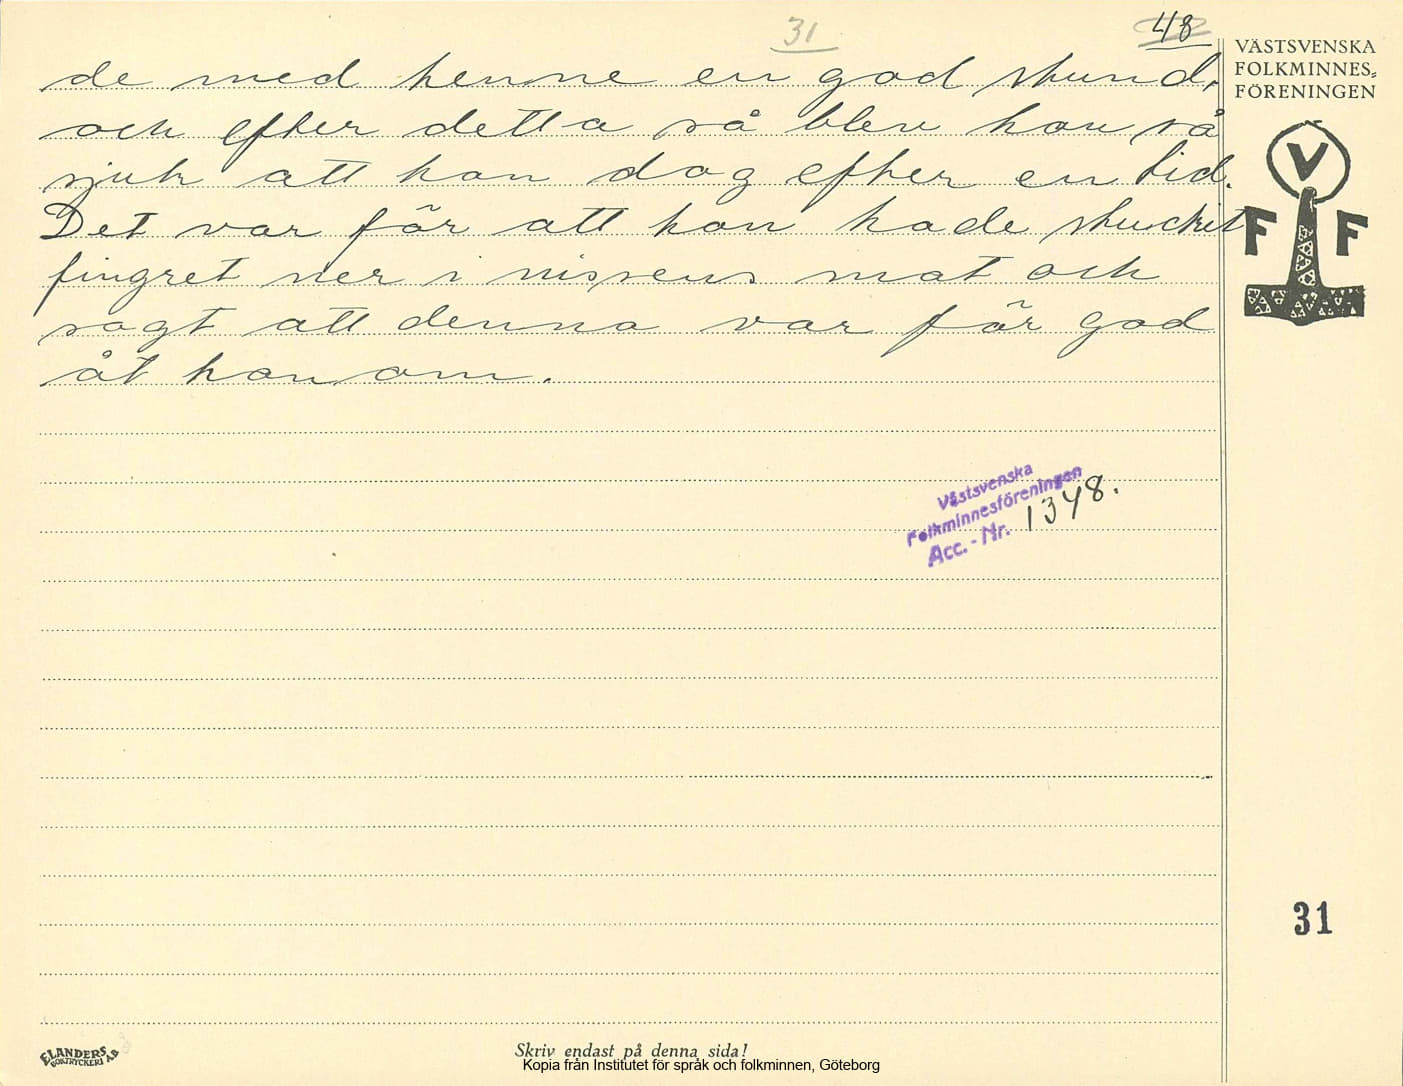 31
48
VÄSTSVENSKA
FOLKMINNES-
FÖRENINGEN
V
F F
de med henne en god stund,
och efter detta så blev hon så
sjuk att hon dog efter en tid.
Det var för att hon hade stuckit
fingret ner i nissens mat och
sagt att denna var för god
åt honom.
Västsvenska
Folkminnesföreningen
Acc.-Nr. 1348.
31
ELANDERS
BOKTRYCKERI AB
Skriv endast på denna sida!
Kopia från Institutet för språk och folkminnen, Göteborg